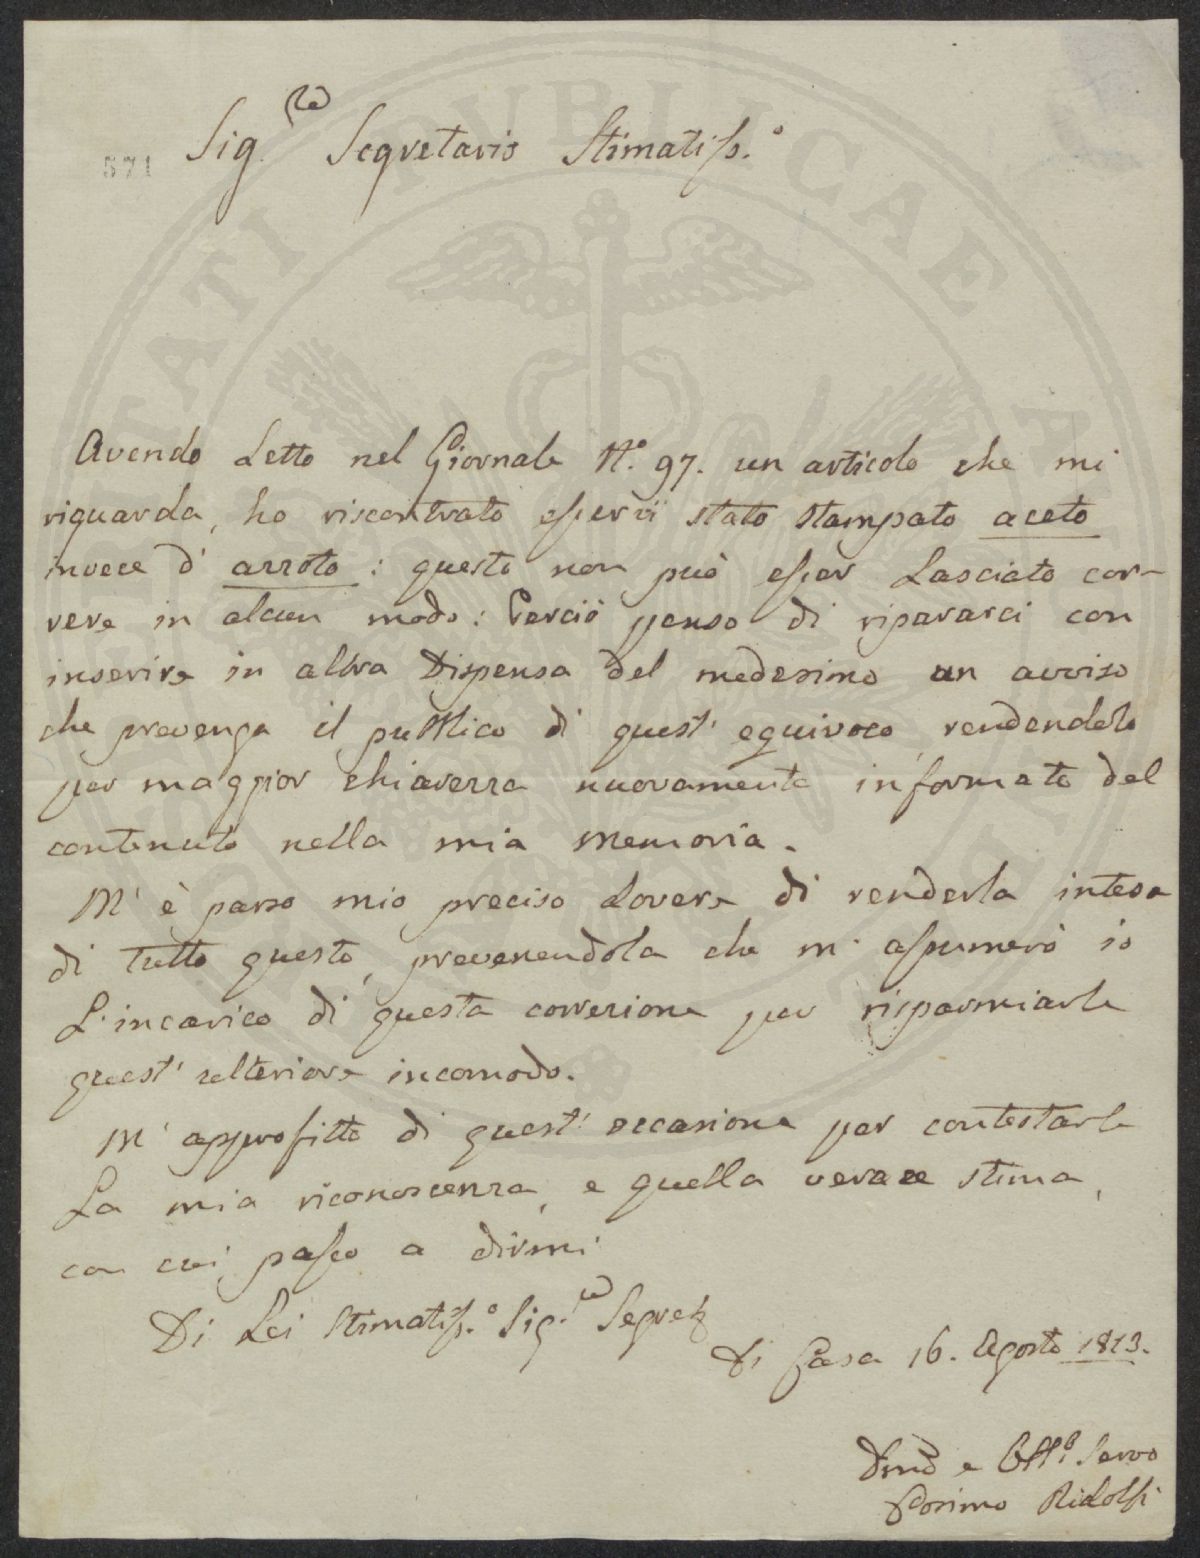 571
Sig.re Segretario Stimatiss.o
Avendo Letto nel Giornale N.o 97. un articolo che mi
riguarda, ho riscontrato esservi stato stampato aceto
invece d' azzoto: questo non può esser Lasciato cor-
rere in alcun modo: Perciò penso di ripararci con
inserire in altra Dispensa del medesimo un avviso
che prevenga il pubblico di quest' equivoco rendendolo
per maggior chiarezza nuovamente informato del
contenuto nella mia Memoria.
M' è parso mio preciso dovere di renderla intesa
di tutto questo, prevenendola che m' assumerò io
L'incarico di questa correzione per risparmiarle
quest' ulteriore incomodo.
M' approfitto di quest' occasione per contestarle
La mia riconoscenza, e quella verace stima,
con cui passo a dirmi
Di Lei Stimatiss.o Sig.re Segret.
Di Casa 16. Agosto 1813.
Dmo e Obbl.o Servo
Cosimo Ridolfi
PUBLICAE